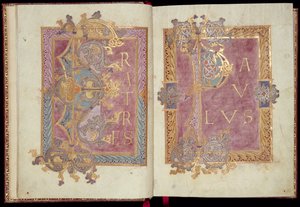 FRA
TR
ES
PAV
LVS